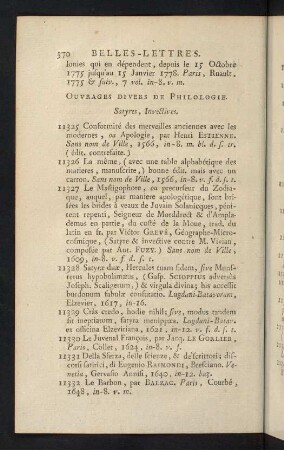 370 BELLES-LETTRES.
lonies qui en dépendent, depuis le 15 Octobre
1775 jusqu'au 15 Janvier 1778. Paris, Ruault,
1775 & suiv., 7 vol. in-8. v. m.
OUVRAGES DIVERS DE PHILOLOGIE.
Satyres, Invectives.
11325 Conformité des merveilles anciennes avec les
modernes, ou Apologie, par Henri ESTIENNE.
Sans nom de Ville, 1566, in-8. m. bl. d. s. tr.
(édit. contrefaite.)
11326 La même, (avec une table alphabétique des
matieres, manuscrite,) bonne édit. mais avec un
carton. Sans nom de Ville, 1566, in-8. v. f. d. s. t.
11327 Le Mastigophore, ou precurseur du Zodia-
que, auquel, par maniere apologétique, sont bri-
sées les brides à veaux de Juvain Solanicques, péni-
tent repenti, Seigneur de Morddrect & d'Ampla-
demus en partie, du costé de la Moue, trad. du
latin en fr. par Victor GREVÉ, Géographe-Micro-
cosmique, (Satyre & invective contre M. Vivian,
composée par Ant. FUZY.) Sans nom de Ville,
1609, in-8. v. f. d. s. t.
11328 Satyræ duæ, Hercules tuam fidem, sive Muns-
terus hypobolimæus, (Gasp. SCIOPPIUS adversùs
Joseph. Scaligerum,) & virgula divina; his accessit
burdonum fabulæ confutatio. Lugduni-Batavorum,
Elzevier, 1617, in-16.
11329 Cras credo, hodie nihil; sive, modus tandem
sit ineptiarum, satyra menippæa. Lugduni-Batav.
ex officina Elzeviriana, 1621, in-12. v. f. d. s. t.
11330 Le Juvenal François, par Jacq. LE GORLIER,
Paris, Collet, 1624, in-8. v. f.
11331 Della Sferza, delle scienze, & de'scrittori: dis-
corsi satirici, di Eugenio RAIMONDI, Bresciano. Ve-
netia, Gervasio Annisi, 1640, in-12. baz.
11332 Le Barbon, par BALZAC. Paris, Courbé,
1648, in-8. v. m.